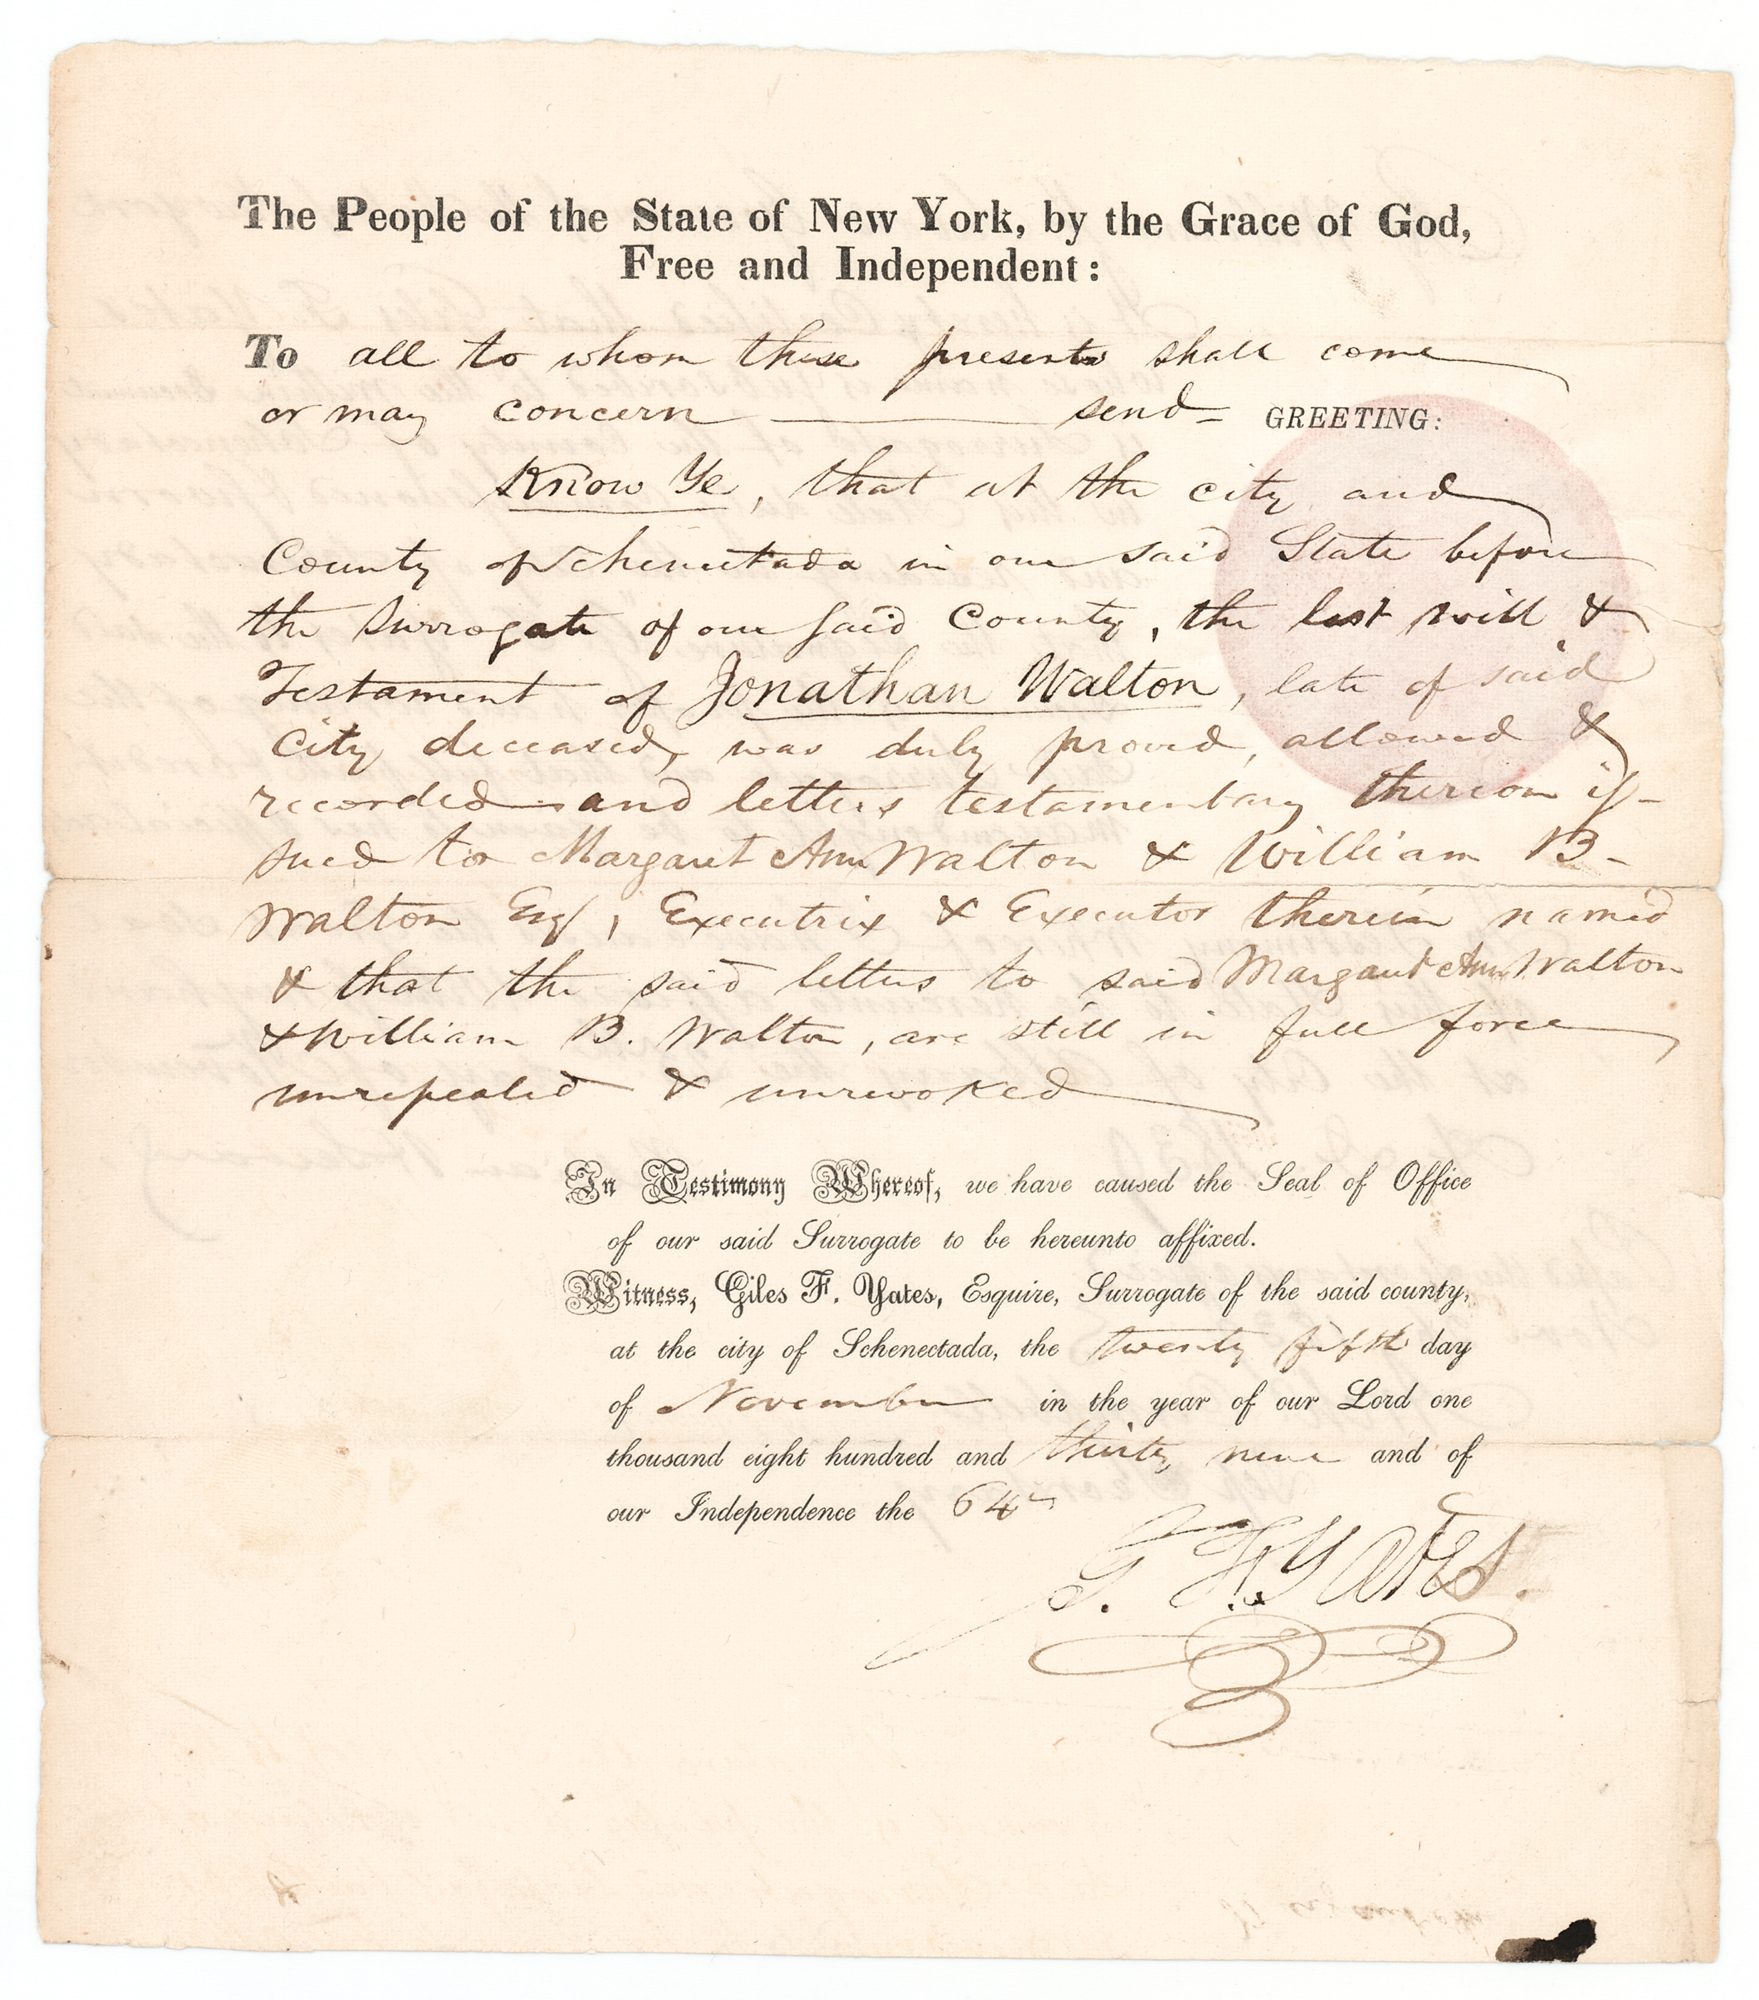 The People of the State of New York, by the Grace of God,
Free and Independent:
To all to whom these presents shall come
or may concern send GREETING:
Know Ye, that at the city and
County of Schenectada in our said State before
the Surrogate of our said County, the last will &
Testament of Jonathan Walton, late of said
City deceased, was duly proved, allowed &
recorded and letters testamentary thereon is-
sued to Margaret Ann Walton & William B.
Walton Esqr, Executrix & Executor therein named
& that the said letters to said Margaret Ann Walton
& William B. Walton, are still in full force
unrepealed & unrevoked
In Testimony Whereof, we have caused the Seal of Office
of our said Surrogate to be hereunto affixed.
Witness, Giles F. Yates, Esquire, Surrogate of the said county,
at the city of Schenectada, the twenty fifth day
of November in the year of our Lord one
thousand eight hundred and thirty nine and of
our Independence the 64th
G. F. Yates.